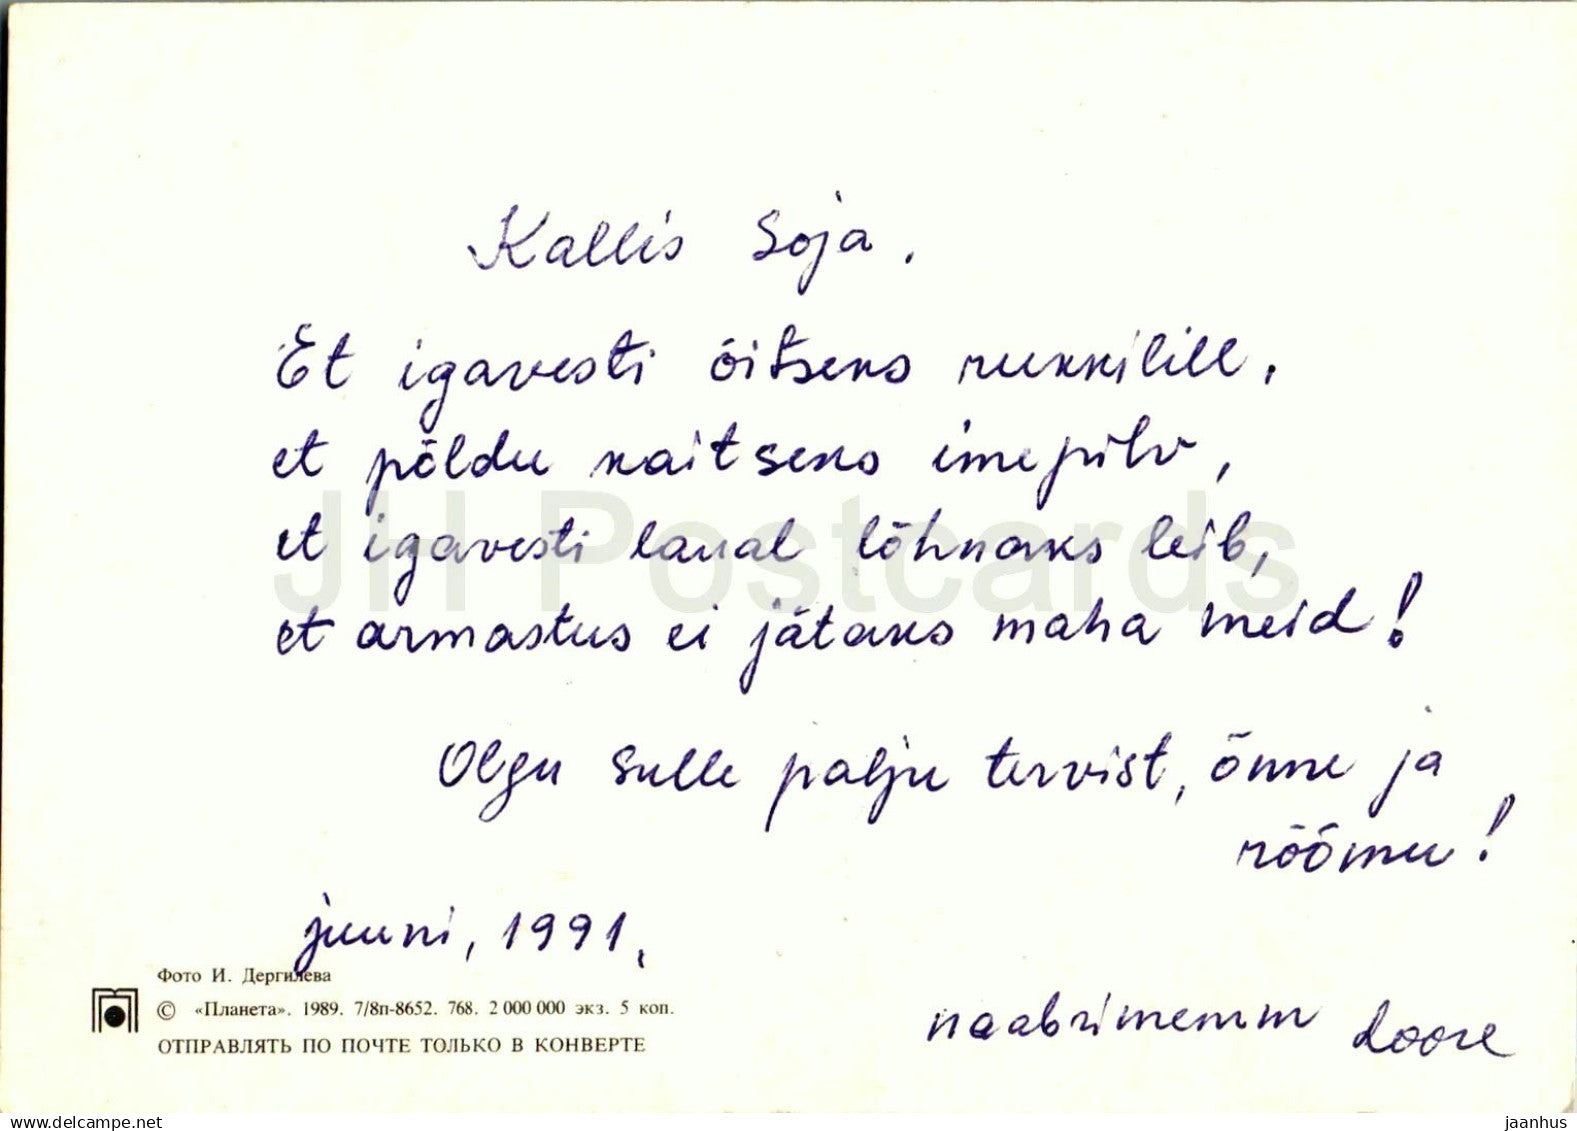 Kallis Soja.
Et igavesti õitseks rukkilill,
et põldu kaitseks imepilv,
et igavesti laual lõhnaks leib,
et armastus ei jätaks maha meid!
Olgu Sulle palju tervist, õnne ja
rõõmu!
juuni, 1991.
naabrimemm Loore
Фото И. Дергилева
© «Планета». 1989. 7/8п-8652. 768. 2 000 000 экз. 5 коп.
ОТПРАВЛЯТЬ ПО ПОЧТЕ ТОЛЬКО В КОНВЕРТЕ
JH Postcards
delcampe.net
jaanhus